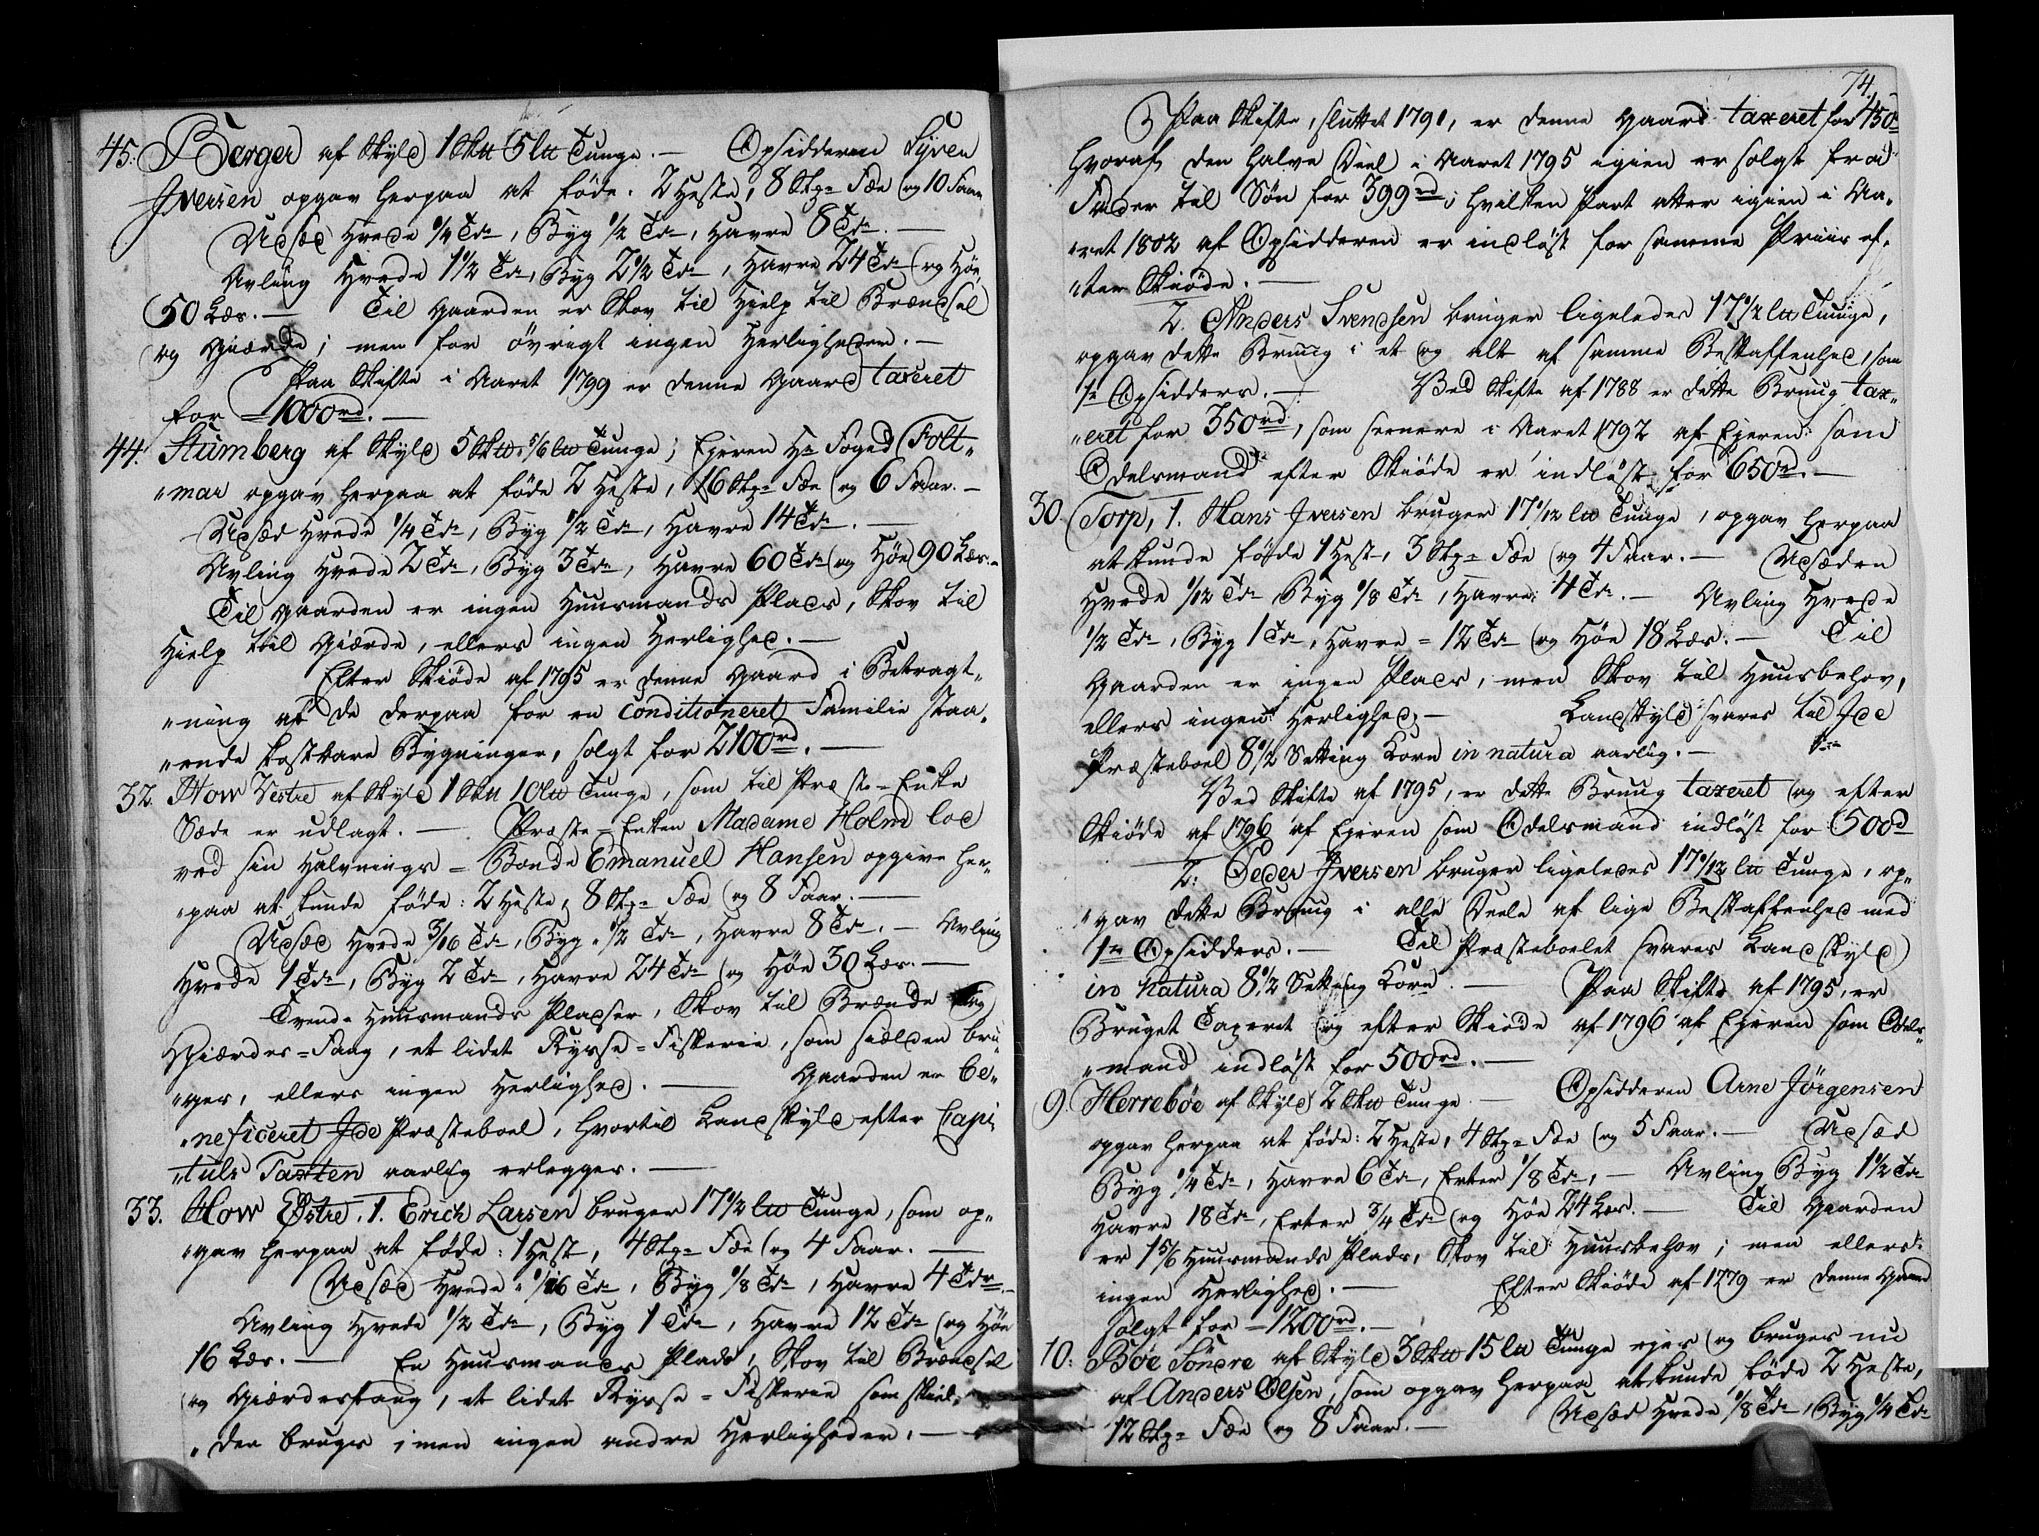 45. Berger af Skyld 1 Sk℔ 5 l℔ Tunge. — Opsidderen Syver
Iversen opgav herpaa at føde. 2 Heste, 8 Stk= Fæe og 10 Faar
Udsæd Hvede 1/4 Tdr, Byg 1/2 Tdr, Havre 8 Tdr. —
Avling Hvede 1 1/2 Tdr, Byg 2 1/2 Tdr, Havre 24 Tdr og Høe
50 Læs. — Til Gaarden er Skov til Hielp til Brændsel
og Giærde; men for øvrigt ingen Herligheder. —
Paa Skifte i Aaret 1799 er denne Gaard taxeret
for 1000rd. —
44. Stumberg af Skyld 5 Sk℔ 5/6 l℔ Tunge; Ejeren Hr Foged Folt„
„mar opgav herpaa at føde 2 Heste, 16 Stk= Fæe og 6 Faar. —
Udsæd Hvede 1/4 Tdr, Byg 1/2 Tdr, Havre 14 Tdr. —
Avling Hvede 2 Tdr, Byg 3 Tdr, Havre 60 Tdr og Høe 90 Læs. —
Til Gaarden er ingen Huusmands Plads, Skov til
Hielp til Giærde, ellers ingen Herlighed. —
Efter Skiøde af 1795 er denne Gaard i Betragt„
„ning af de derpaa for en conditioneret Familie staa„
„ende kostbare Bygninger, solgt for 2100rd. —
32. How Vestre af Skyld 1 Sk℔ 10 l℔ Tunge, som til Præste=Enke
Sæde er udlagt. — Præste=Enken Madame Holm lod
ved sin Halvnings=Bonde Emanuel Hansen opgive her„
„paa at kunde føde: 2 Heste, 8 Stk= Fæe og 8 Faar. —
Udsæd Hvede 3/16 Tdr, Byg 1/2 Tdr, Havre 8 Tdr. — Avling
Hvede 1 Tdr, Byg 2 Tdr, Havre 24 Tdr og Høe 30 Læs. —
Tvende Huusmands Pladser, Skov til Brænde og
Giærdes=Fang, et lidet Ryrse=Fiskerie, som sielden bru„
„ges, ellers ingen Herlighed. — Gaarden er be„
„neficeret Ide Præsteboel, hvortil Landskyld efter Capi„
„tuls Taxten aarlig erlegges. —
33. How Østre, 1. Erich Larsen bruger 17 1/2 l℔ Tunge, som op„
„gav herpaa at føde: 1 Hest, 4 Stk= Fæe og 4 Faar. —
Udsæd Hvede 1/16 Tdr, Byg 1/8 Tdr, Havre 4 Tdr. —
Avling Hvede 1/2 Tdr, Byg 1 Tdr, Havre 12 Tdr og Høe
16 Læs. — En Huusmands Plads, Skov til Brændsel
og Giærdesfang, et lidet Ryrse=Fiskerie som siel„
„den bruges; men ingen andre Herligheder. —
74.
Paa Skifte, sluttet 1791, er denne Gaard taxeret for 450rd
hvoraf den halve Deel i Aaret 1795 igien er solgt fra
Fader til Søn for 399rd; hvilken Part atter igien i Aa„
„ret 1802 af Opsidderen er indløst for samme Priis ef„
„ter Skiøde. —
2. Anders Svendsen bruger ligeledes 17 1/2 l℔ Tunge,
opgav dette Bruug i et og alt af samme Beskaffenhed, som
1te Opsidders. — Ved Skifte af 1788 er dette Bruug tax„
„eret for 350rd, som senere i Aaret 1792 af Ejeren som
Odelsmand efter Skiøde er indløst for 650rd. —
30 Torp, 1. Hans Iversen bruger 17 1/12 l℔ Tunge, opgav herpaa
at kunde føde 1 Hest, 3 Stk= Fæe og 4 Faar. — Udsæden
Hvede 1/12 Tdr Byg 1/8 Tdr, Havre 4 Tdr. — Avling Hvede
1/2 Tdr, Byg 1 Tdr, Havre = 12 Tdr og Høe 18 Læs. — Til
Gaarden er ingen Plads, men Skov til Huusbehov,
ellers ingen Herlighed. — Landskyld svares til Ide
Præsteboel 8 1/2 Setting Korn in natura aarlig. —
Ved Skifte af 1795, er dette Bruug taxeret og efter
Skiøde af 1796 af Ejeren som Odelsmand indløst for 500rd
2. Peder Iversen bruger ligeledes 17 1/12 l℔ Tunge, op„
„gav dette Bruug i alle Deele af lige Beskaffenhed med
1te Opsidders. — Til Præsteboelet svares Landskyld
in natura 8 1/2 Setting Korn. — Paa Skifte af 1795, er
Bruget Taxeret og efter Skiøde af 1796 af Ejeren som Odels„
„mand indløst for 500rd. —
9. Herrebøe af Skyld 2 Sk℔ Tunge. — Opsidderen Arne Jørgensen
opgav herpaa at føde: 2 Heste, 4 Stk= Fæe og 5 Faar. — Udsæd
Byg 1/4 Tdr, Havre 6 Tdr, Erter 1/8 Tdr, — Avling Byg 1 1/2 Tdr
Havre 18 Tdr, Erter 3/4 Tdr og Høe 24 Læs. — Til Gaarden
er 1 5/6 Huusmands Plads, Skov til Huusbehov; men ellers
ingen Herlighed. — Efter Skiøde af 1779 er denne Gaard
solgt for 1200rd. —
10: Bøe Søndre af Skyld 3 Sk℔ 15 l℔ Tunge ejes og bruges nu
af Anders Olsen, som opgav herpaa at kunde føde 2 Heste,
12 Stk= Fæe og 8 Faar. — Udsæd Hvede 1/8 Tdr, Byg 1/4 Tdr